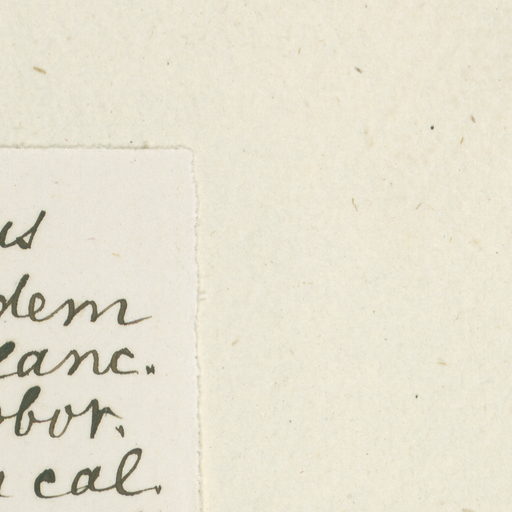 us
dem
lanc.
obor.
cal.